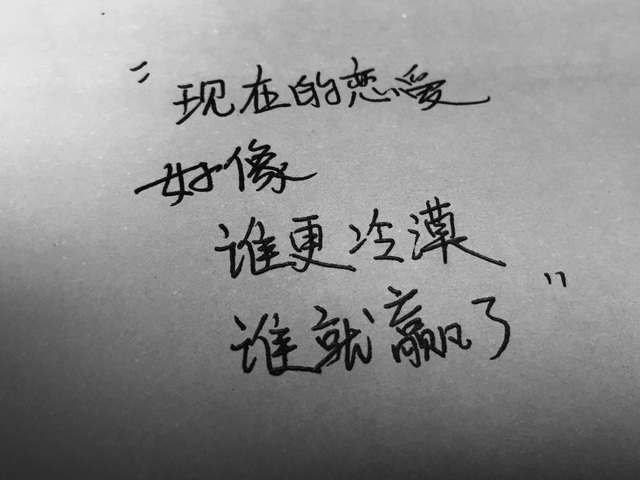 "现在的恋爱
好像
谁更冷漠
谁就赢了"